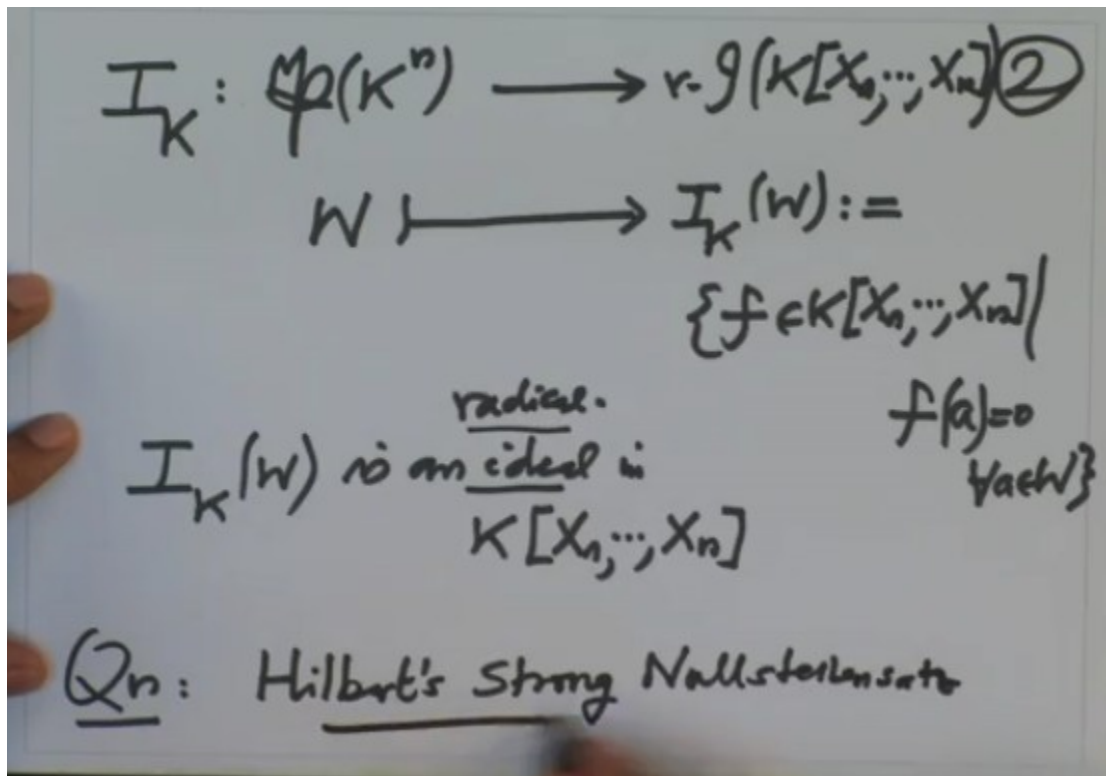 I_K : 𝔓(K^n) ⟶ r-𝒥(K[X_1,…,X_n]) ②
W ⟼ I_K(W) :=
{f ∈ K[X_1,…,X_n] |
f(a)=0
∀a∈W}
radical.
I_K(W) is an ideal in
K[X_1,…,X_n]
Qn: Hilbert's Strong Nullstellensatz